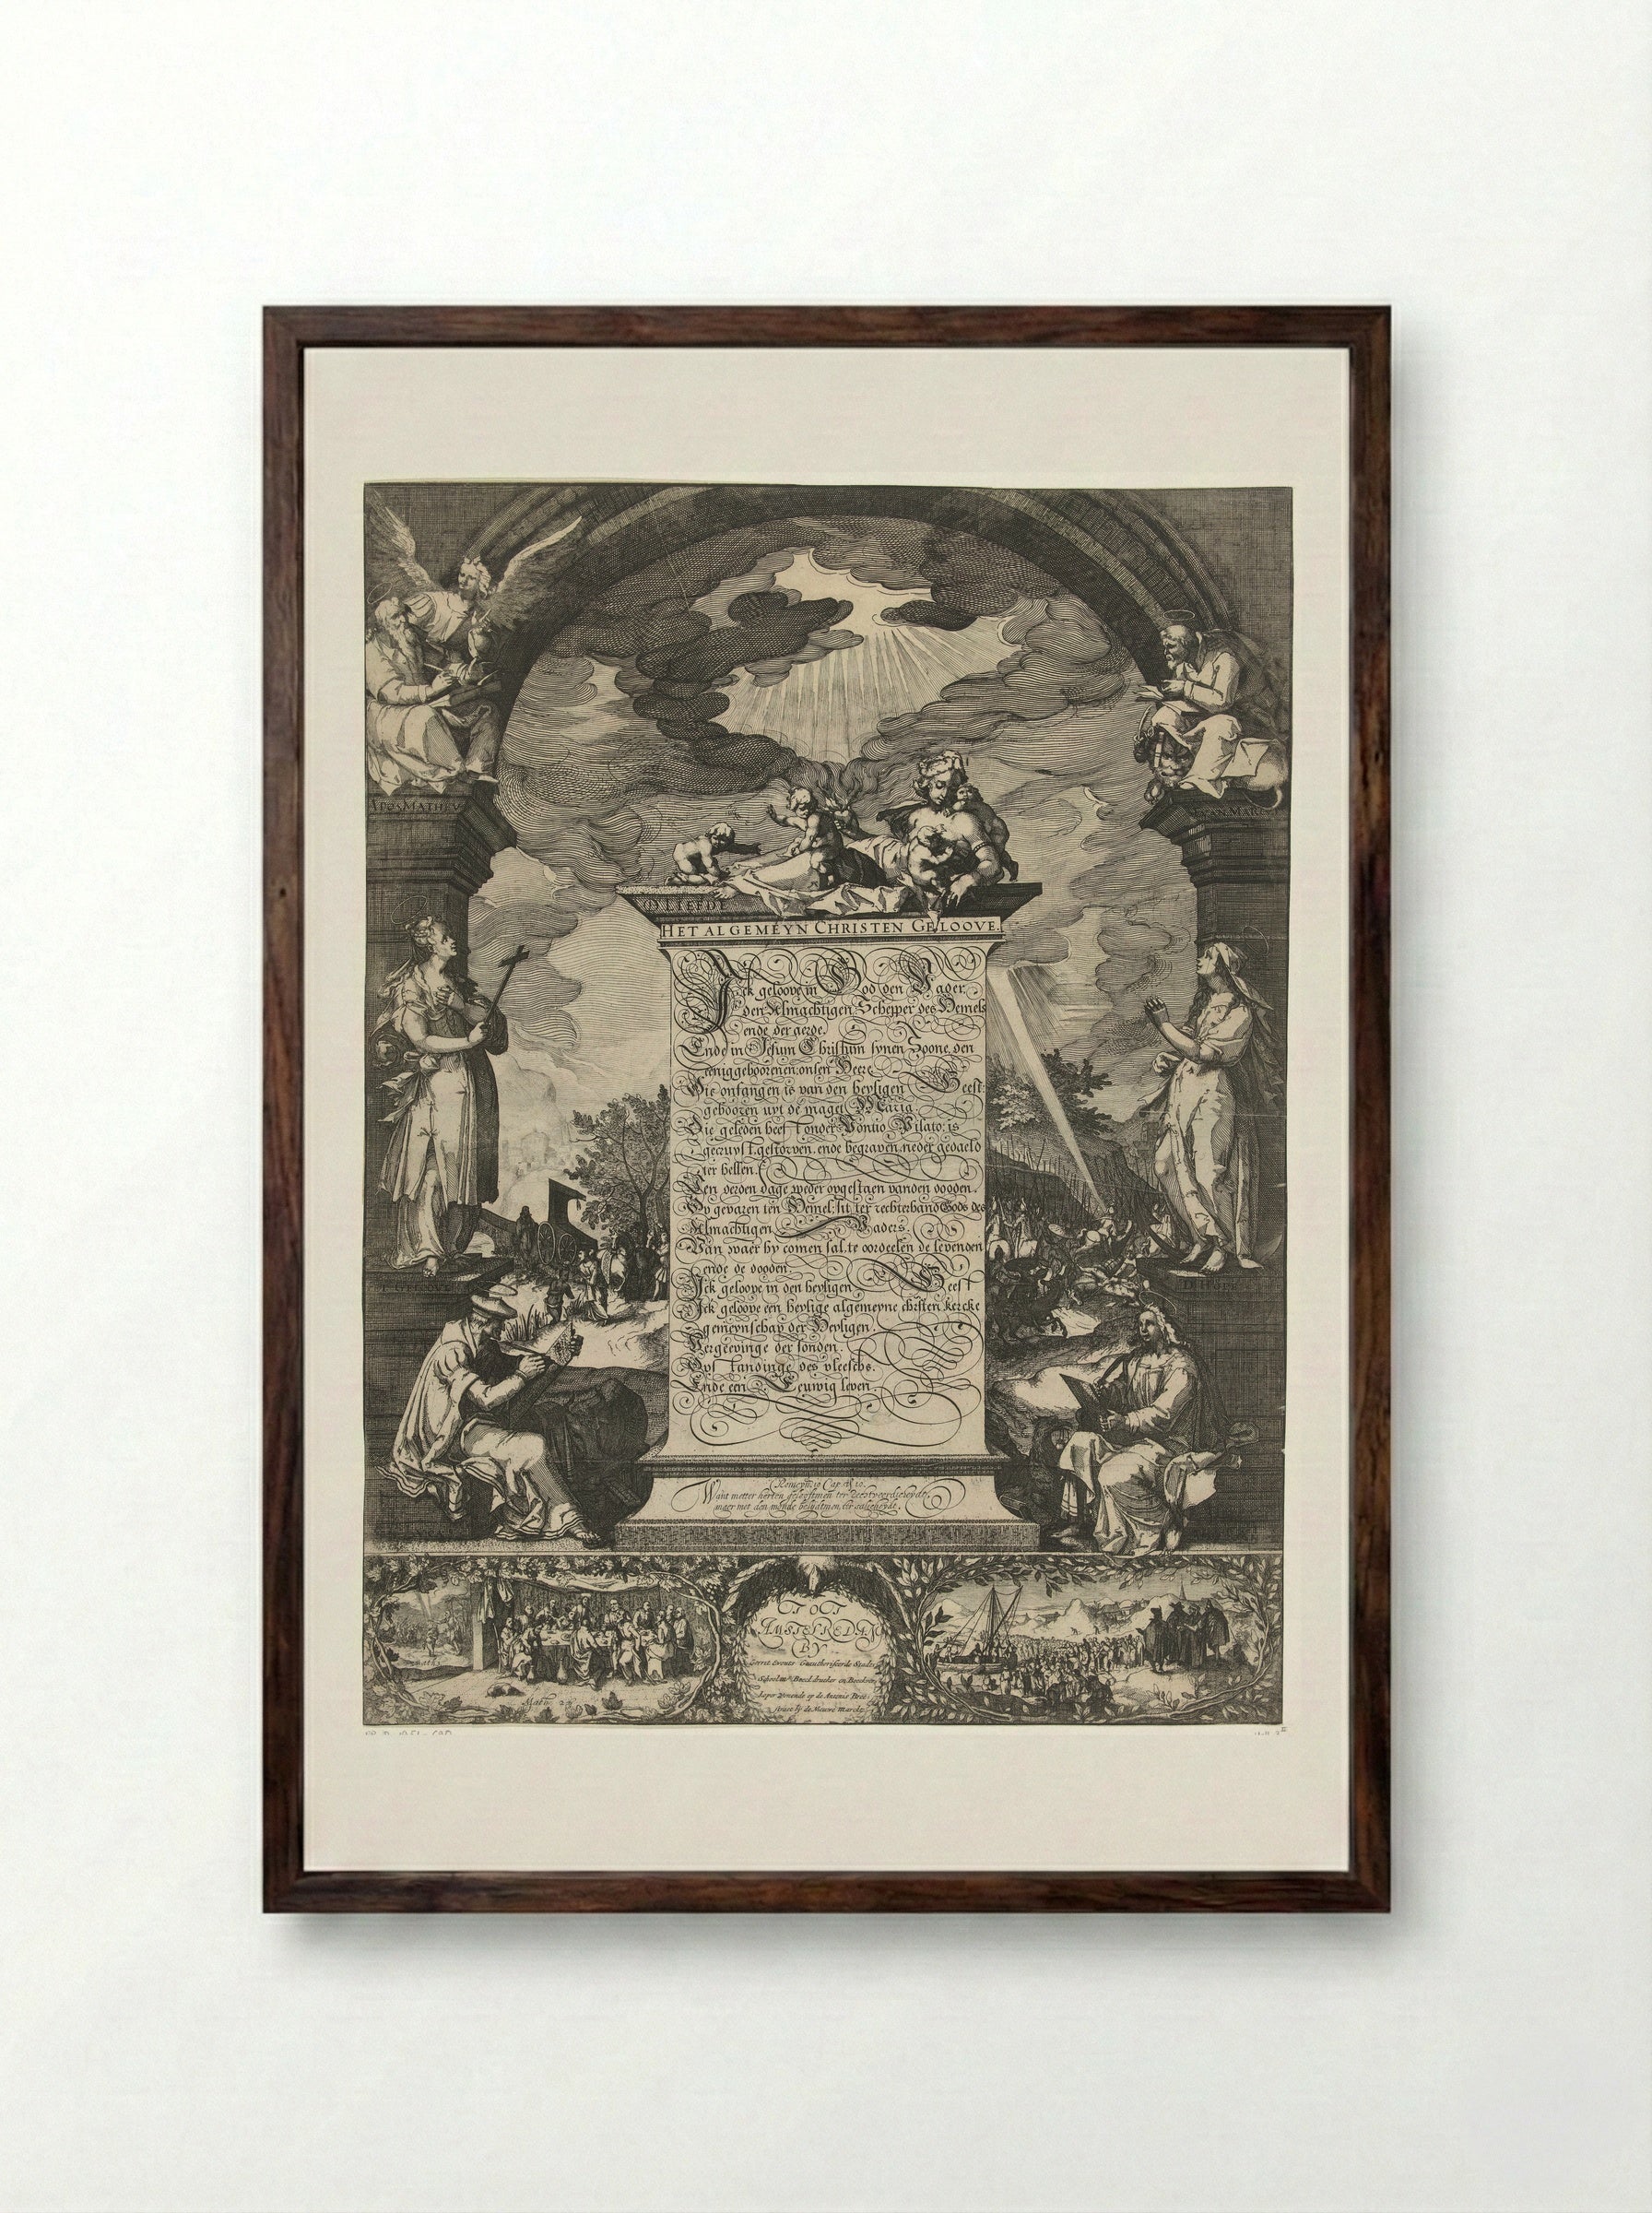 APOS MATHEVS
EVAN MARCVS
D LIEFDE
HET ALGEMEYN CHRISTEN GELOOVE.
Ick geloove in God den Vader,
den Almachtigen Schepper des Hemels
ende der aerde.
Ende in Jesum Christum synen Zoone, den
eeniggeboorenen, onsen Heere
Die onfangen is van den heyligen Geest
gebooren uyt de maget Maria
Die geleden heeft onder Pontio Pilato, is
gecruyst, gestorven, ende begraven, neder gedaeld
ter hellen.
Den derden dage weder opgestaen vanden dooden.
Op gevaren ten Hemel, sit ter rechterhand Gods des
Almachtigen Vaders.
Van waer hy comen sal, te oordeelen de levenden
ende de dooden
Ick geloove in den heyligen Geest
Ick geloove een heylige algemeyne christen kercke
gemeynschap der Heyligen.
Vergeevinge der sonden.
Opstandinge des vleeschs.
Ende een Eeuwig leven.
Romeyn. 10 Cap. 10.
Want metter herten gelooftmen ter
maer met den monde
TOT
AMSTELREDAM
BY
Gerret Evouts
School Boeckdrucker en
op de Anconis Bree
by de Nieuwe Marckt
Math.
Math 22